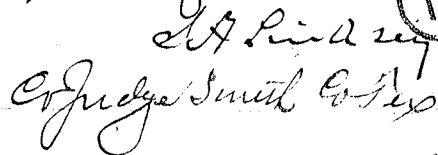 S A Lindsey
Co Judge Smith Co Tex